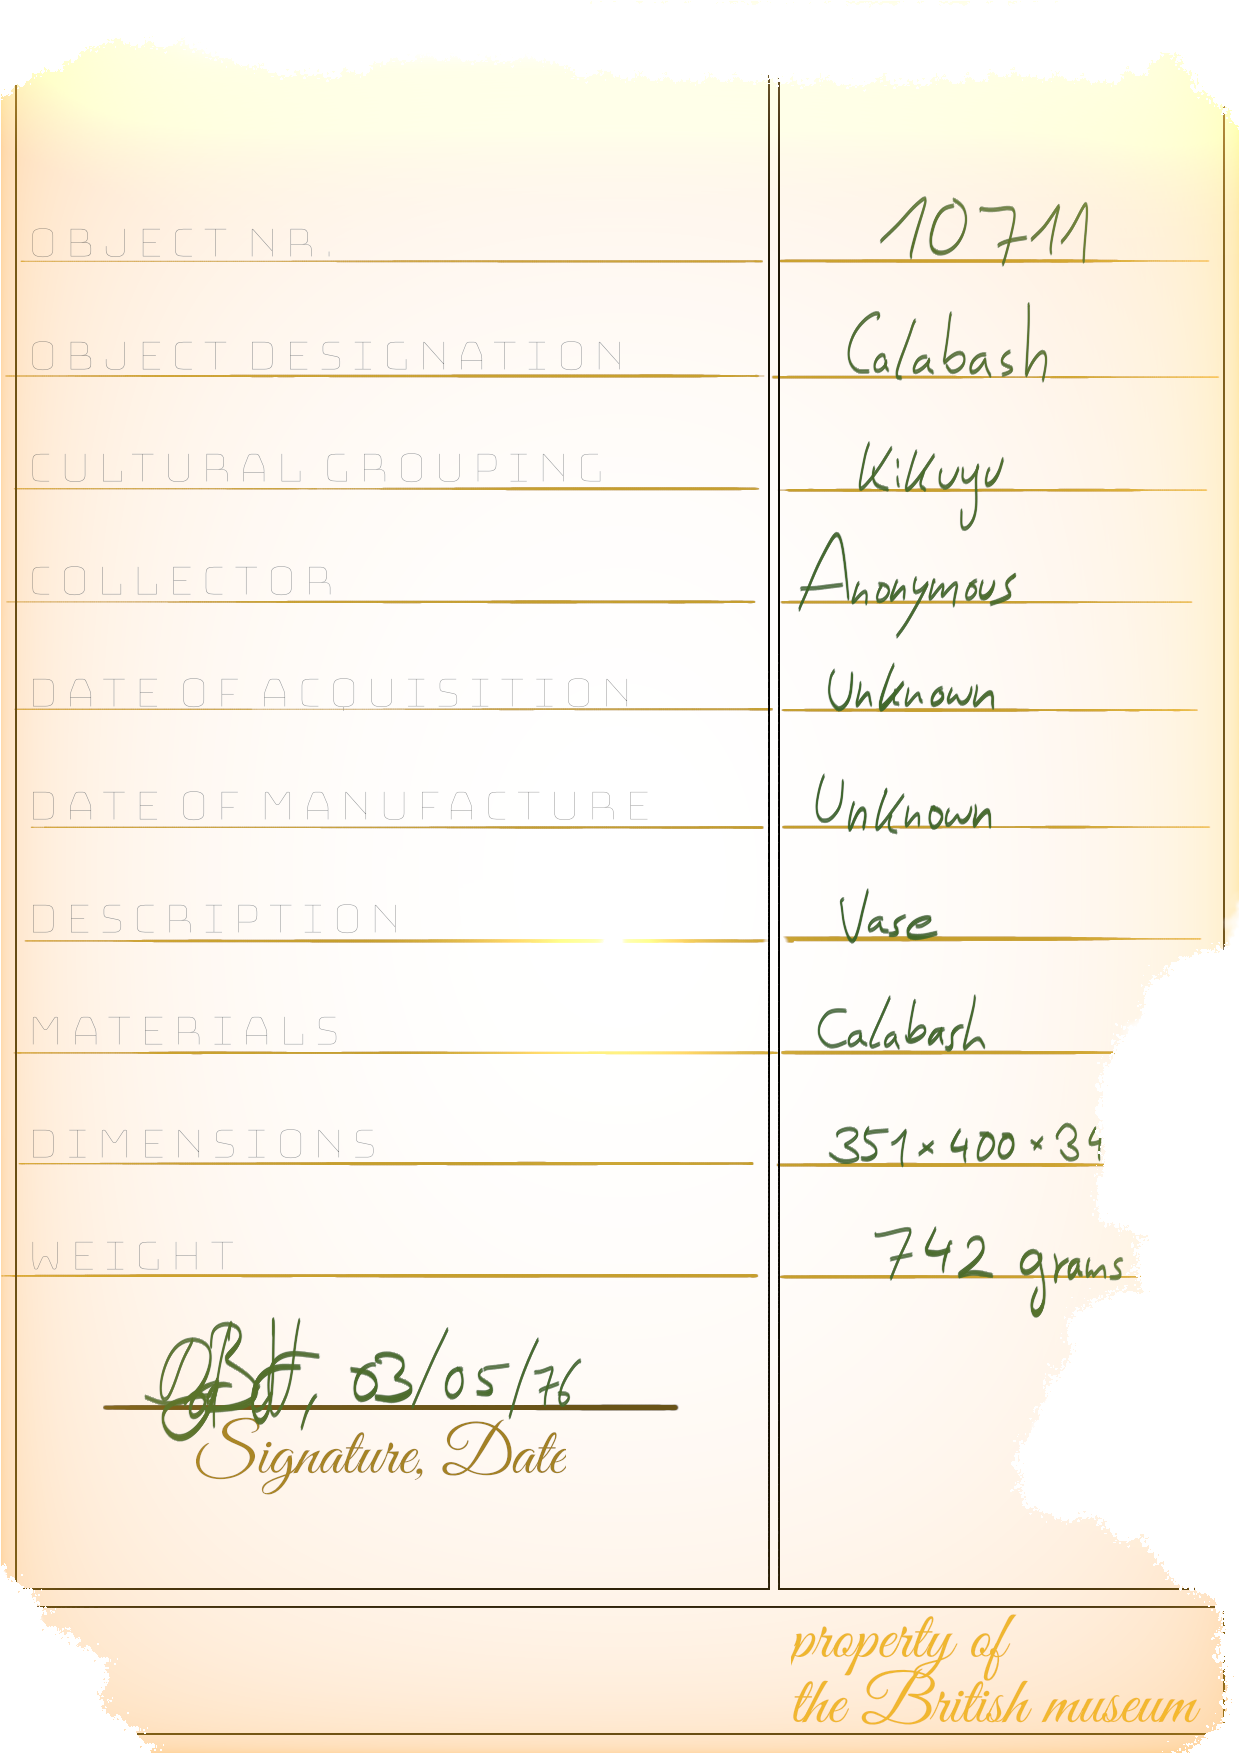 OBJECT NR. 10711
OBJECT DESIGNATION Calabash
CULTURAL GROUPING Kikuyu
COLLECTOR Anonymous
DATE OF ACQUISITION Unknown
DATE OF MANUFACTURE Unknown
DESCRIPTION Vase
MATERIALS Calabash
DIMENSIONS 351 × 400 × 34
WEIGHT 742 grams
, 03/05/76
Signature, Date
property of
the British museum